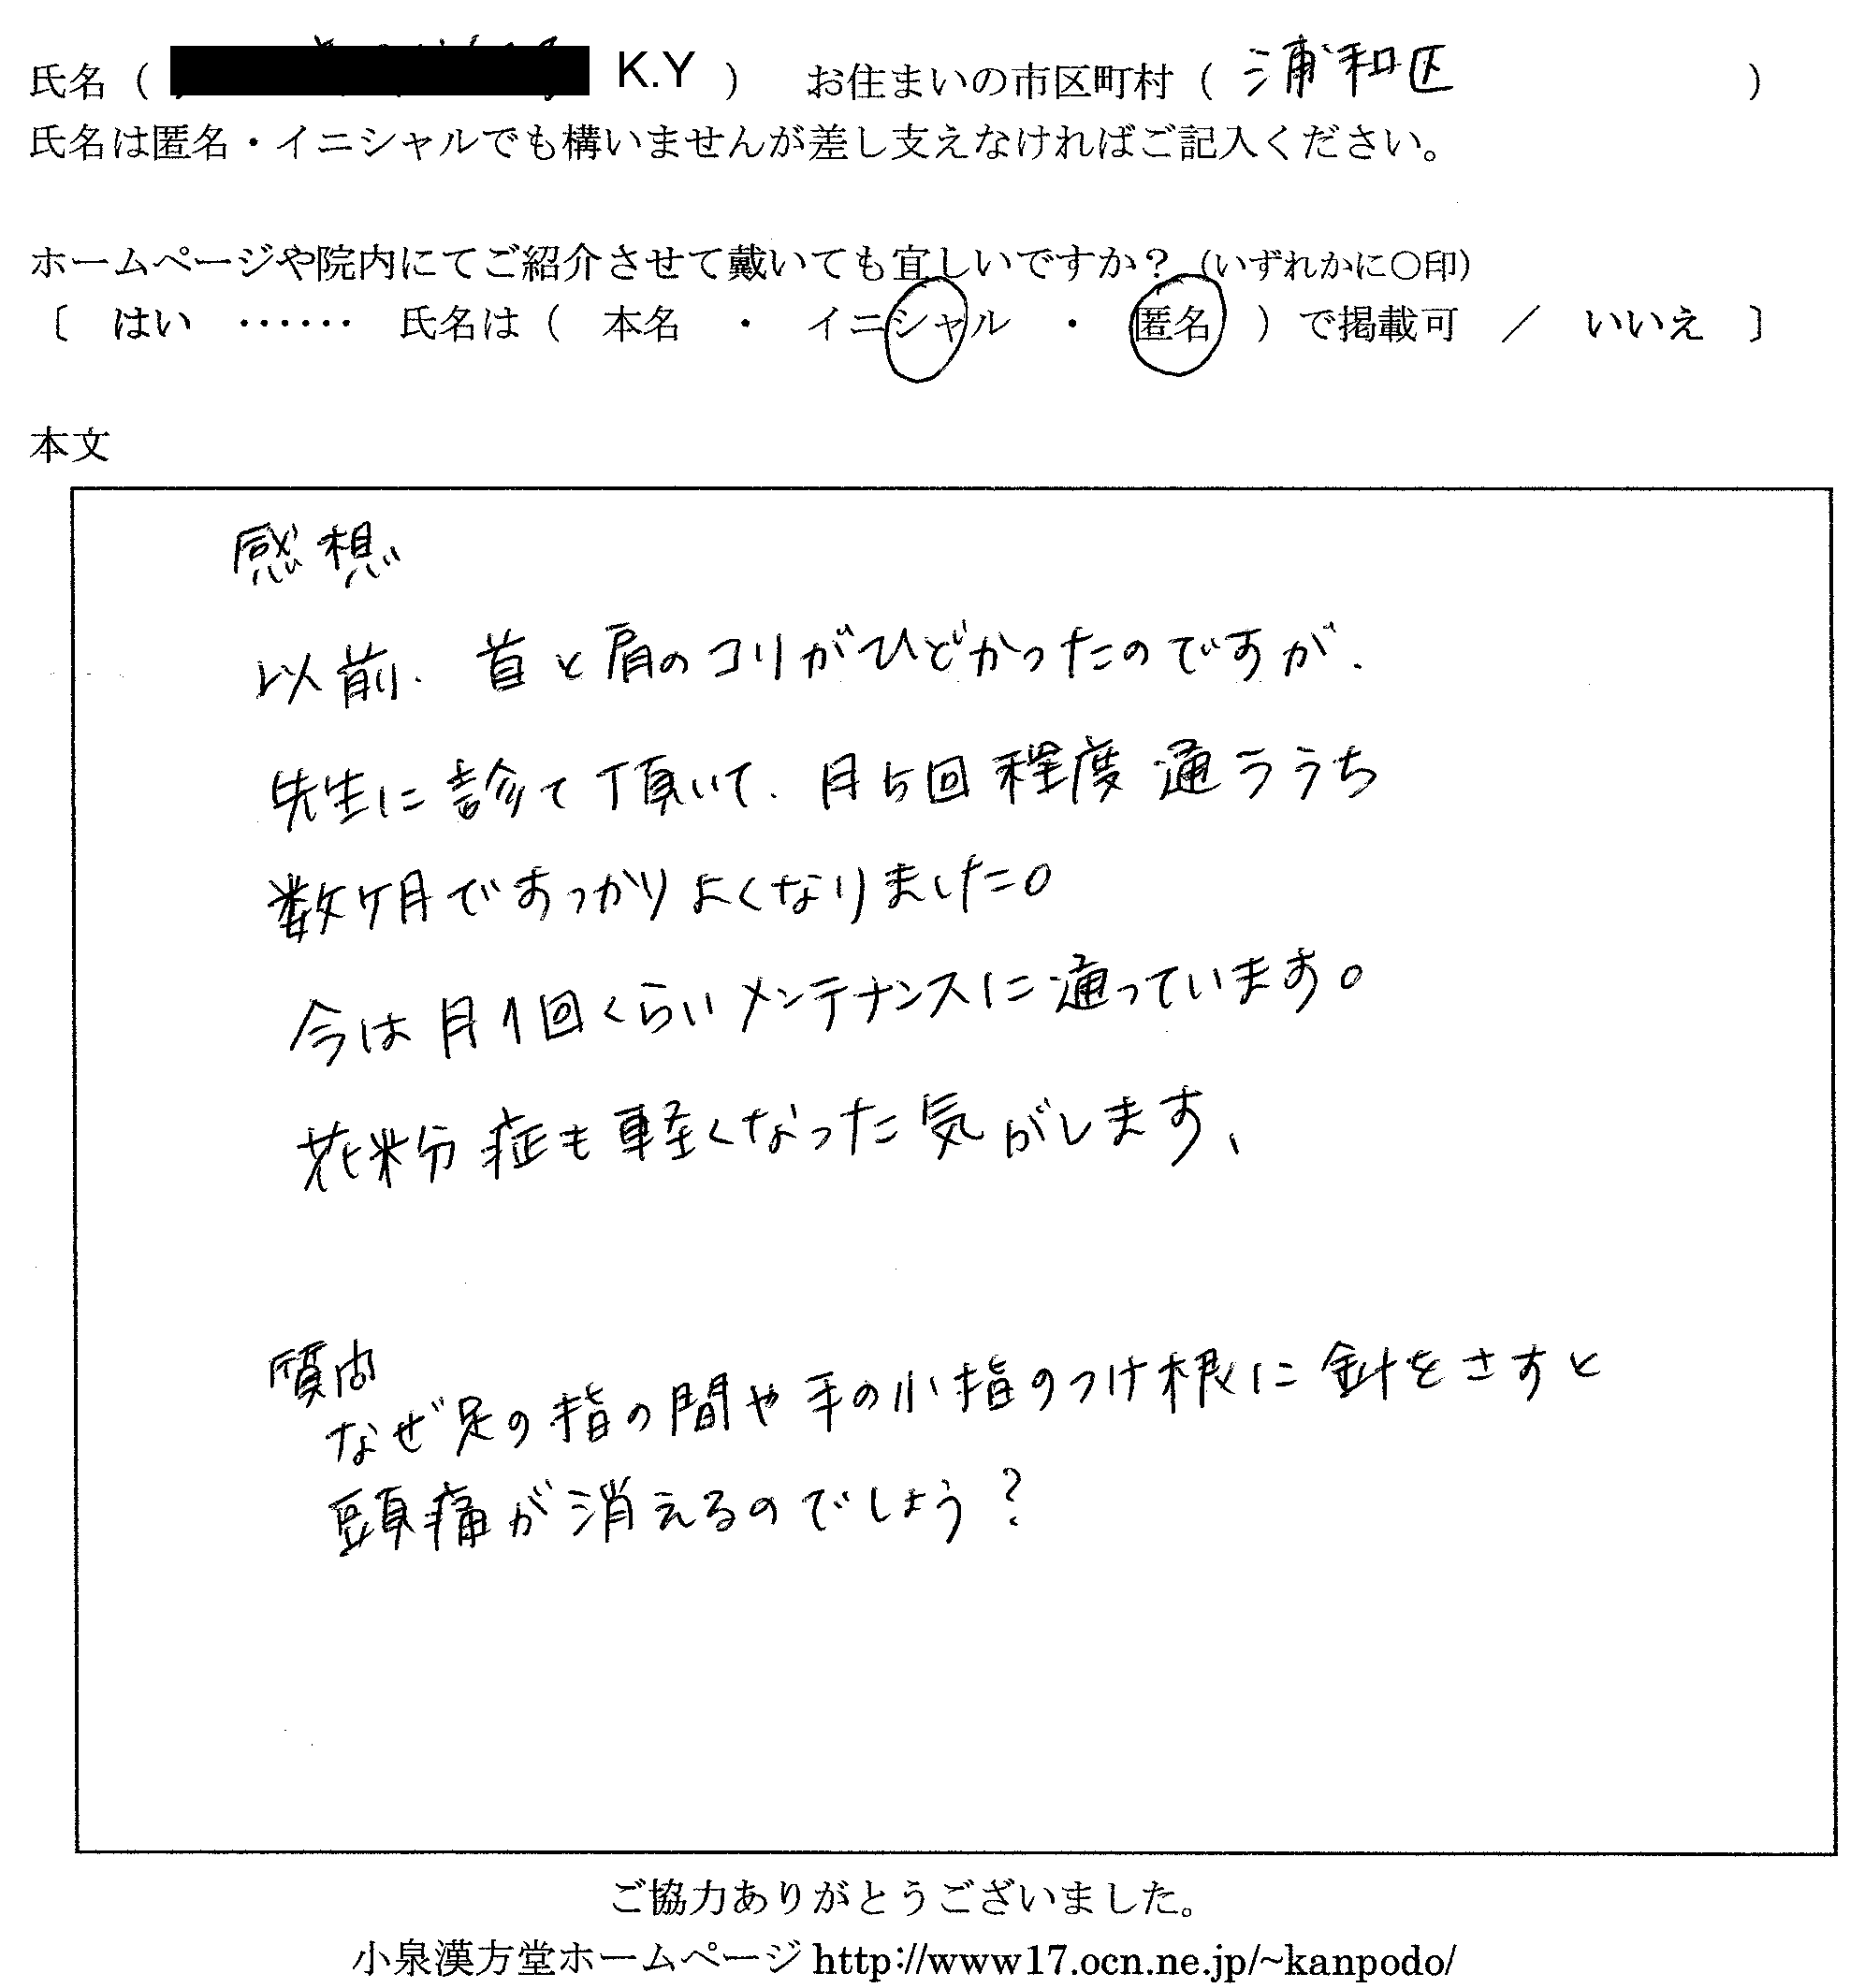 氏名（ K.Y ） お住まいの市区町村（ 浦和区 ）
氏名は匿名・イニシャルでも構いませんが差し支えなければご記入ください。
ホームページや院内にてご紹介させて戴いても宜しいですか？（いずれかに〇印）
〔 はい ‥‥‥ 氏名は（ 本名 ・ イニシャル ・ 匿名 ）で掲載可 ／ いいえ 〕
本文
感想
以前、首と肩のコリがひどかったのですが、
先生に診て頂いて、月5回程度通ううち
数ヶ月ですっかりよくなりました。
今は月1回くらいメンテナンスに通っています。
花粉症も軽くなった気がします、
質問
なぜ足の指の間や手の小指のつけ根に針をさすと
頭痛が消えるのでしょう？
ご協力ありがとうございました。
小泉漢方堂ホームページ http://www17.ocn.ne.jp/~kanpodo/